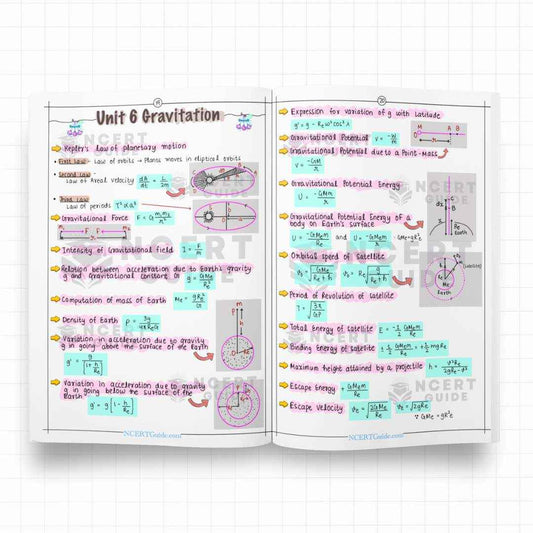 Unit 6 Gravitation
Kepler's law of planetary motion
First Law - Law of orbits → Planets moves in eliptical orbits
Second Law - Law of Areal velocity dA/dt = L/2m
Third Law - Law of periods T² ∝ a³
Gravitational Force F = G m₁m₂/r²
Intensity of Gravitational field I = F/m
Relation between acceleration due to Earth's gravity
g and Gravitational constant G: g = GMe/Re²
Computation of mass of Earth Me = gRe²/G
Density of Earth ρ = 3g/4πReG
Variation in acceleration due to gravity
g in going above the surface of the Earth
g' = g/[1 + h/Re]
Variation in acceleration due to gravity
g in going below the surface of the
Earth
g' = g[1 - h/Re]
NCERTGuide.com
Expression for variation of g with Latitude
g' = g - Reω²cos²λ
Gravitational Potential V = -W/m
Gravitational Potential due to a Point-Mass
V = -GM/r
Gravitational Potential Energy
U = -GMm/r
Gravitational Potential Energy of a
body on Earth's surface
U = -GMem/Re and U = -GMem/r ∵ GMe=gR²e
Orbital speed of satellite
Vo = √GMe/Re+h Vo = Re√g/Re+h
Period of Revolution of satellite
T = √3π/Gρ
Total Energy of satellite E = -1/2 GMem/Re
Binding Energy of satellite
Maximum height attained by a projectile h = v²Re/2gRe-v²
Escape Energy = GMem/Re
Escape Velocity ve = √2GMe/Re ve = √2gRe
∵ GMe = gR²e
NCERTGuide.com
NCERT
GUIDE